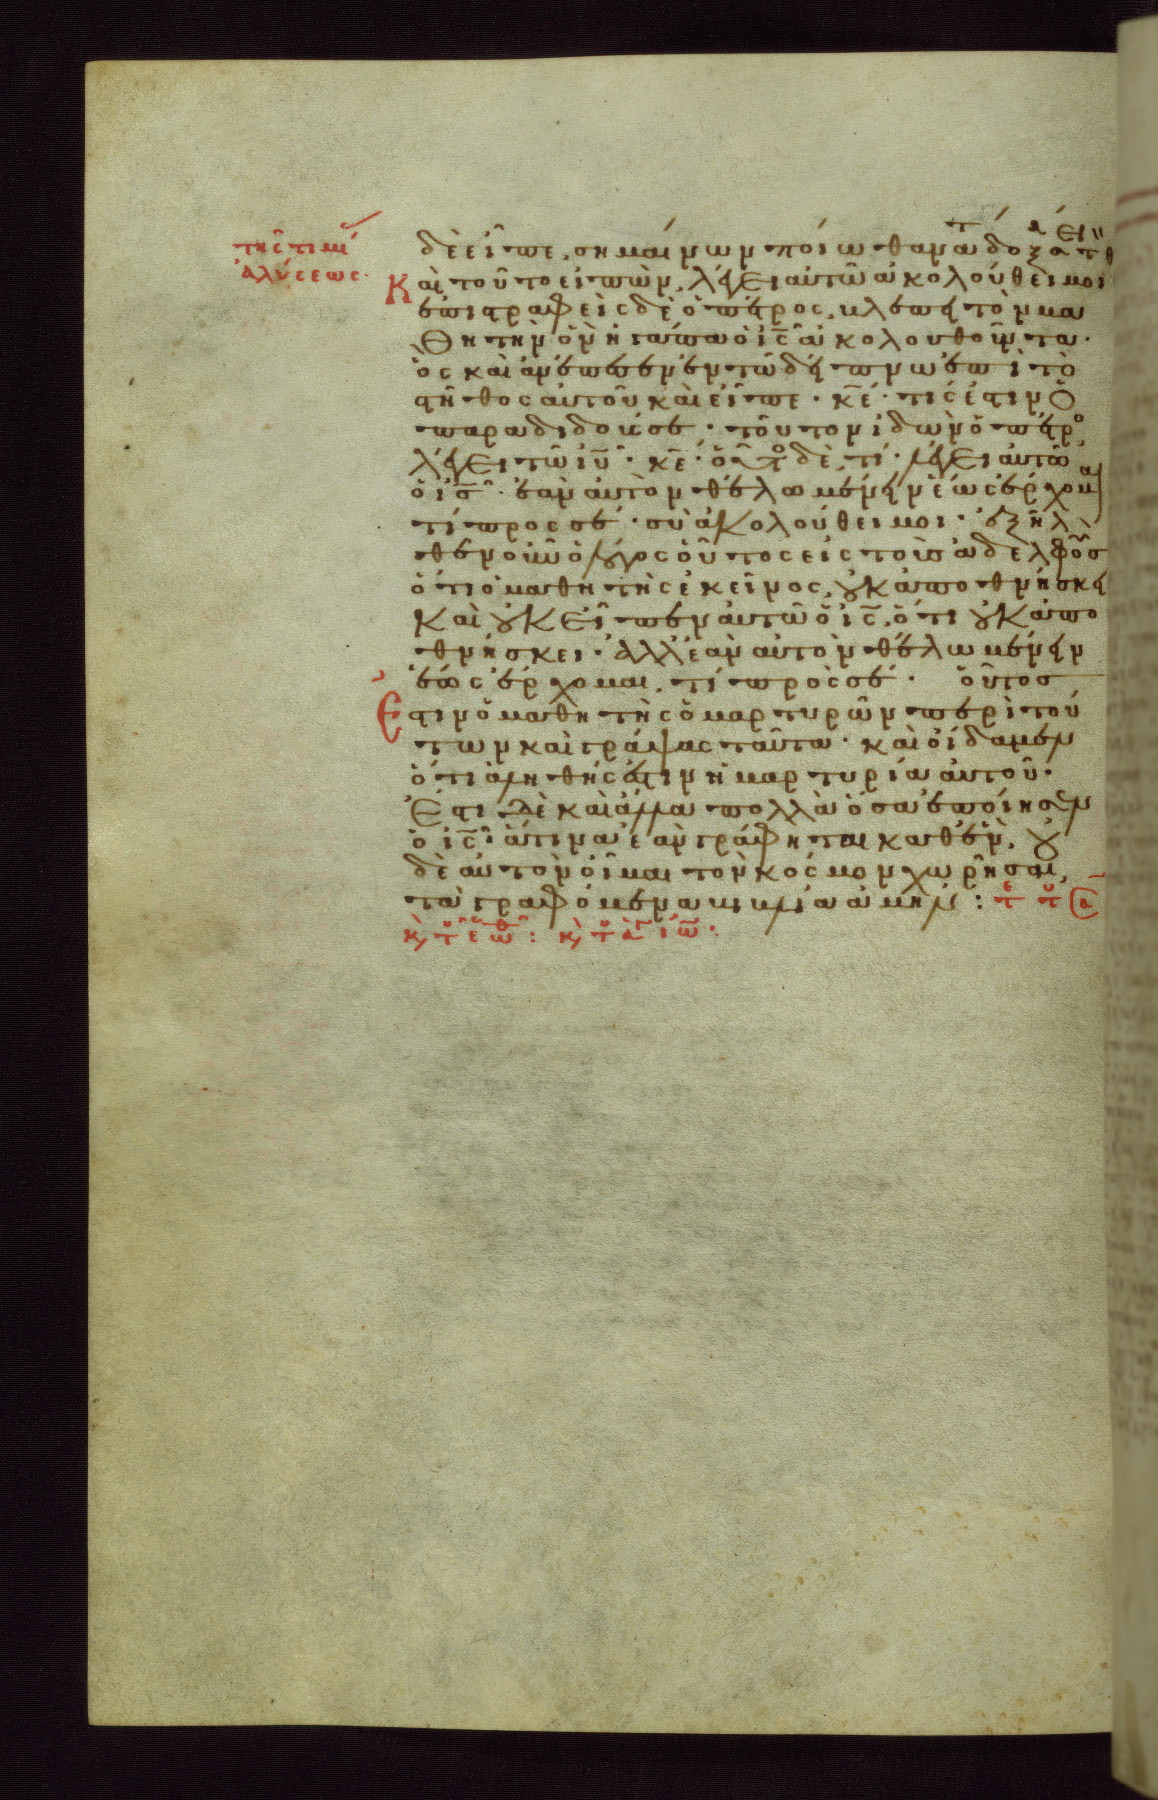 τῆς τιμί
ἁλύσεως.
δὲ εἶπε, σημαίνων ποίω θανάτ δοξάσει τ θ
Καὶ τοῦτο εἰπὼν, λέγει αὐτῶ ἀκολούθει μοι
ἐπιστραφεὶς δὲ ὁ πέτρος, βλέπει τὸν μα
θητὴν ὃν ἠγάπα ὁ ι̅ς̅ ἀκολουθοῦντα.
ὃς καὶ ἀνέπεσεν ἐν τῶ δείπνω ἐπὶ τὸ
στῆθος αὐτοῦ καὶ εἶπε. κ̅ε̅. τίς ἐστιν ὁ
παραδιδούς σε. τοῦτον ἰδὼν ὁ πέτρο
λέγει τῶ ι̅υ̅. κ̅ε̅. οὗτο δὲ, τί. λέγει αὐτῶ
ὁ ι̅ς̅. ἐὰν αὐτὸν θέλω μένειν ἕως ἔρχομαι
τί πρὸς σέ. σὺ ἀκολούθει μοι. ἐξῆλ
θεν οὖν ὁ λόγος οὗτος εἰς τοὺς ἀδελφοὺς
ὅτι ὁ μαθητὴς ἐκεῖνος, οὐκ ἀποθνήσκει
καὶ οὐκ εἶπεν αὐτῶ ὁ ι̅ς̅, ὅτι οὐκ ἀπο
θνήσκει. ἀλλ' ἐὰν αὐτὸν θέλω μένειν
ἕως ἔρχομαι, τί πρὸς σέ. οὗτος
ἐστιν ὁ μαθητὴς ὁ μαρτυρῶν περὶ τού
των καὶ γράψας ταῦτα. καὶ οἴδαμεν
ὅτι ἀληθής ἐστιν ἡ μαρτυρία αὐτοῦ.
Ἔστι δὲ καὶ ἄλλα πολλὰ ὅσα ἐποίησεν
ὁ ι̅ς̅. ἅτινα ἐὰν γράφηται καθ' ἓν, οὐ
δὲ αὐτὸν οἶμαι τὸν κόσμον χωρῆσαι,
τὰ γραφόμενα βιβλία ἀμήν: